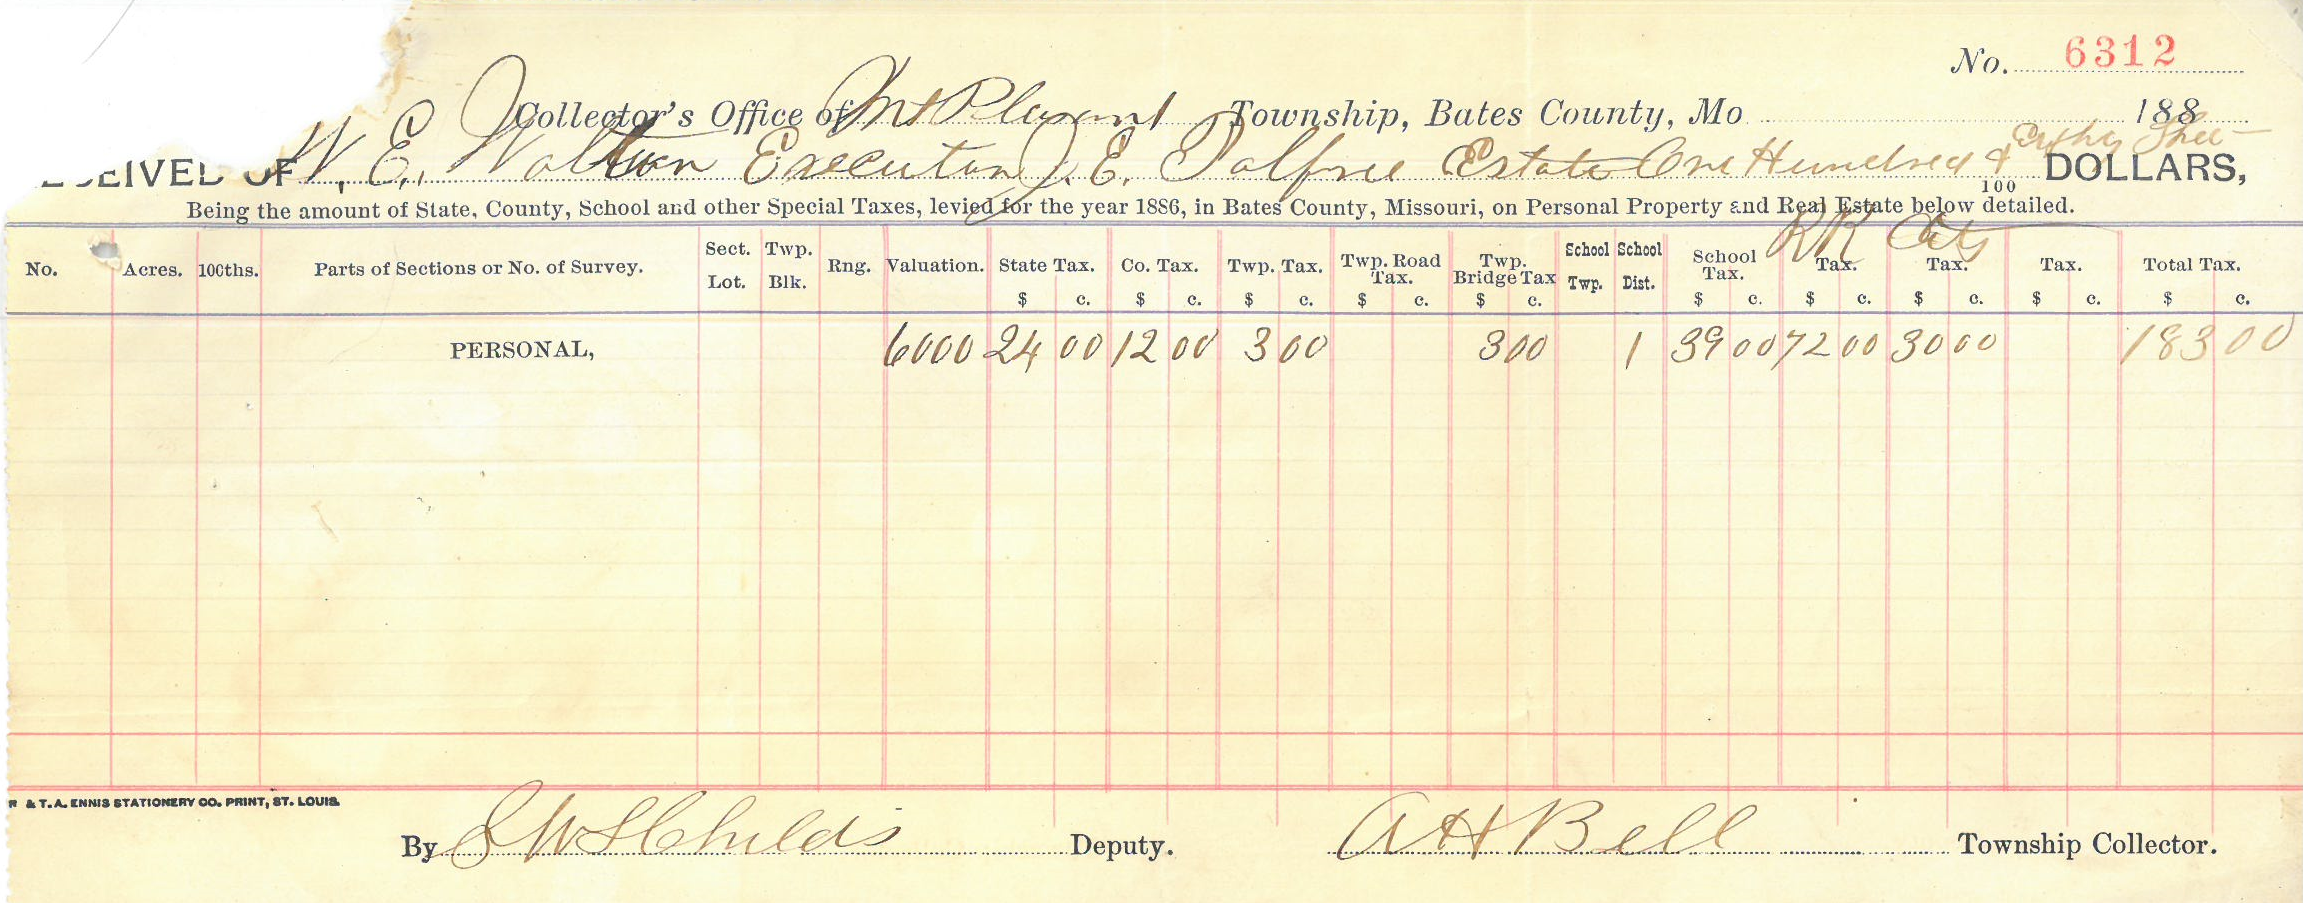 No. 6312
Collector's Office of Mt Pleasant Township, Bates County, Mo 188
EIVED OF W. E. Walton Executor J. E. Palfree Estate One Hundred & Eighty Three 100 DOLLARS,
Being the amount of State, County, School and other Special Taxes, levied for the year 1886, in Bates County, Missouri, on Personal Property and Real Estate below detailed.
No. Acres. 100ths. Parts of Sections or No. of Survey. Sect. Lot. Twp. Blk. Rng. Valuation. State Tax. $ c. Co. Tax. $ c. Twp. Tax. $ c. Twp. Road Tax. $ c. Twp. Bridge Tax $ c. School Twp. School Dist. School Tax. $ c. RR Tax. $ c. City Tax. $ c. Tax. $ c. Total Tax. $ c.
PERSONAL, 6000 24 00 12 00 3 00 3 00 1 39 00 72 00 30 00 183 00
& T. A. ENNIS STATIONERY CO. PRINT, ST. LOUIS.
By Childs Deputy. A H Bell Township Collector.